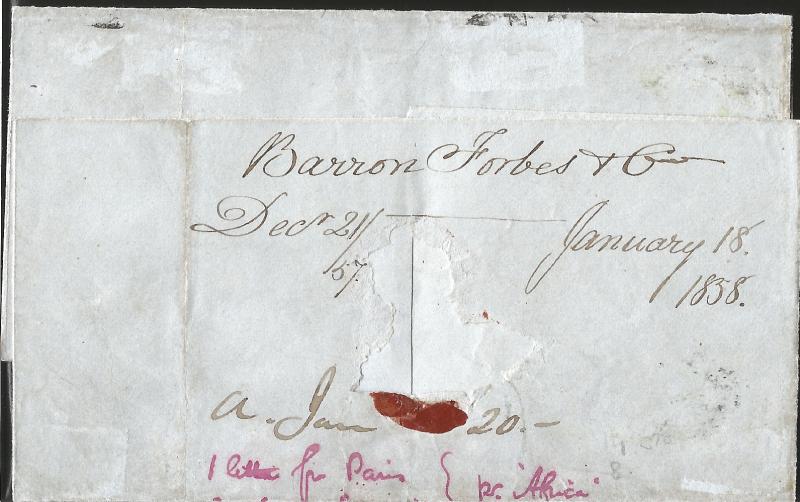 Barron Forbes & Co
Decr 21/57. January 18. 1858.
a. Jan 20.-
1 letter fr Paris pr. 'Africa'